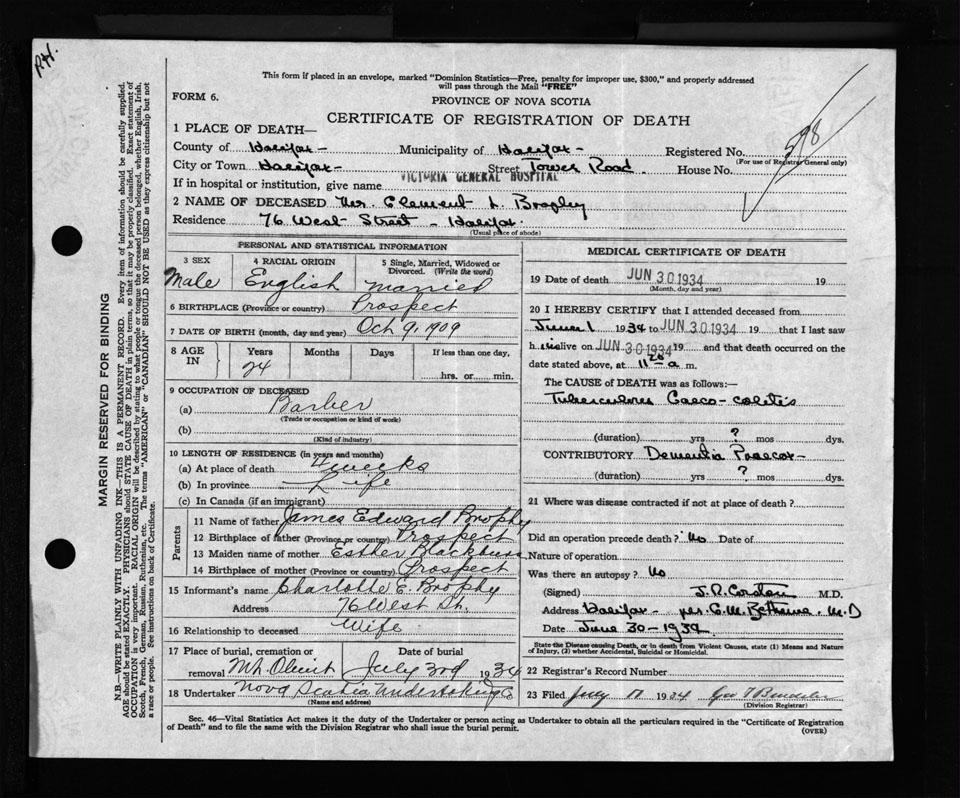 R.H.
This form if placed in an envelope, marked "Dominion Statistics—Free, penalty for improper use, $300," and properly addressed
will pass through the Mail "FREE"
FORM 6.
PROVINCE OF NOVA SCOTIA
CERTIFICATE OF REGISTRATION OF DEATH
598
1 PLACE OF DEATH—
County of Halifax - Municipality of Halifax - Registered No.
(For use of Registrar General only)
City or Town Halifax - Street Tower Road. House No.
If in hospital or institution, give name VICTORIA GENERAL HOSPITAL
2 NAME OF DECEASED Mr. Clement L Brophy
Residence 76 West Street - Halifax.
(Usual place of abode)
PERSONAL AND STATISTICAL INFORMATION
3 SEX 4 RACIAL ORIGIN 5 Single, Married, Widowed or Divorced. (Write the word)
Male English Married
6 BIRTHPLACE (Province or country) Prospect
7 DATE OF BIRTH (month, day and year) Oct 9, 1909
8 AGE IN Years Months Days If less than one day,
24 hrs. or min.
9 OCCUPATION OF DECEASED
(a) Barber
(Trade or occupation or kind of work)
(b)
(Kind of industry)
10 LENGTH OF RESIDENCE (in years and months)
(a) At place of death 4 weeks
(b) In province Life
(c) In Canada (if an immigrant)
Parents
11 Name of father James Edward Brophy
12 Birthplace of father (Province or country) Prospect
13 Maiden name of mother Esther
14 Birthplace of mother (Province or country) Prospect
15 Informant's name Charlotte E. Brophy
Address 76 West St.
16 Relationship to deceased Wife
17 Place of burial, cremation or removal Date of burial
Mt. Olivet July 3rd 1934
18 Undertaker Nova Scotia Undertaking Co
(Name and address)
MEDICAL CERTIFICATE OF DEATH
19 Date of death JUN 30 1934 19
(Month, day and year)
20 I HEREBY CERTIFY that I attended deceased from
June 1 1934 to JUN 30 1934 19 that I last saw
h im alive on JUN 30 1934 19 and that death occurred on the
date stated above, at 11 20 a m.
The CAUSE of DEATH was as follows:—
Tuberculous Caeco-colitis
(duration) yrs ? mos dys.
CONTRIBUTORY Dementia Praecox -
(duration) yrs ? mos dys.
21 Where was disease contracted if not at place of death?
Did an operation precede death? No Date of
Nature of operation
Was there an autopsy? No
(Signed) J.R. M.D.
Address Halifax - per. C.M. Bethune. M.D
Date June 30 - 1934
State the Disease causing Death, or in death from Violent Causes, state (1) Means and Nature
of Injury, (2) whether Accidental, Suicidal or Homicidal.
22 Registrar's Record Number
23 Filed July 1934
(Division Registrar)
Sec. 46—Vital Statistics Act makes it the duty of the Undertaker or person acting as Undertaker to obtain all the particulars required in the "Certificate of Registration
of Death" and to file the same with the Division Registrar who shall issue the burial permit.
(OVER)
MARGIN RESERVED FOR BINDING
N.B.—WRITE PLAINLY WITH UNFADING INK—THIS IS A PERMANENT RECORD. Every item of information should be carefully supplied.
AGE should be stated EXACTLY. PHYSICIANS should STATE CAUSE OF DEATH in plain terms, so that it may be properly classified. Exact statement of
OCCUPATION is very important. RACIAL ORIGIN will be described by stating to what people or tongue the deceased person belonged, whether English, Irish,
Scotch, French, German, Russian, Ruthenian, etc. The terms "AMERICAN" or "CANADIAN" SHOULD NOT BE USED as they express citizenship but not
a race or people. See instructions on back of Certificate.